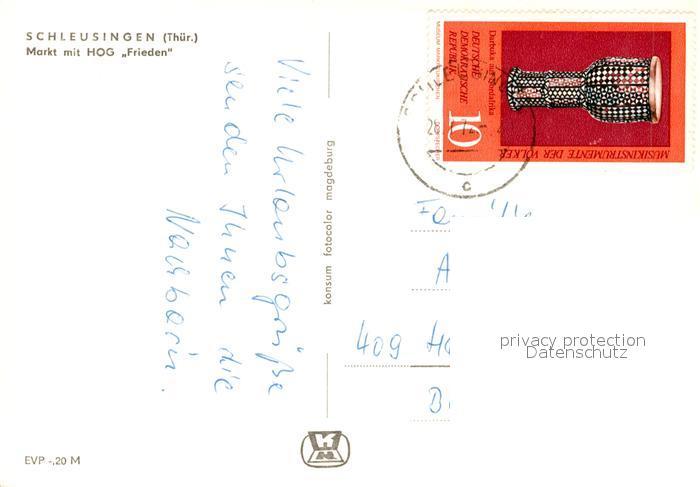 SCHLEUSINGEN (Thür.)
Markt mit HOG „Frieden“
Viele Urlaubsgrüße
senden Ihnen die
Nachbarn.
konsum fotocolor magdeburg
EVP -,20 M
DEUTSCHE
DEMOKRATISCHE
REPUBLIK
10
MUSIKINSTRUMENTE DER VÖLKER
c
409
privacy protection
Datenschutz